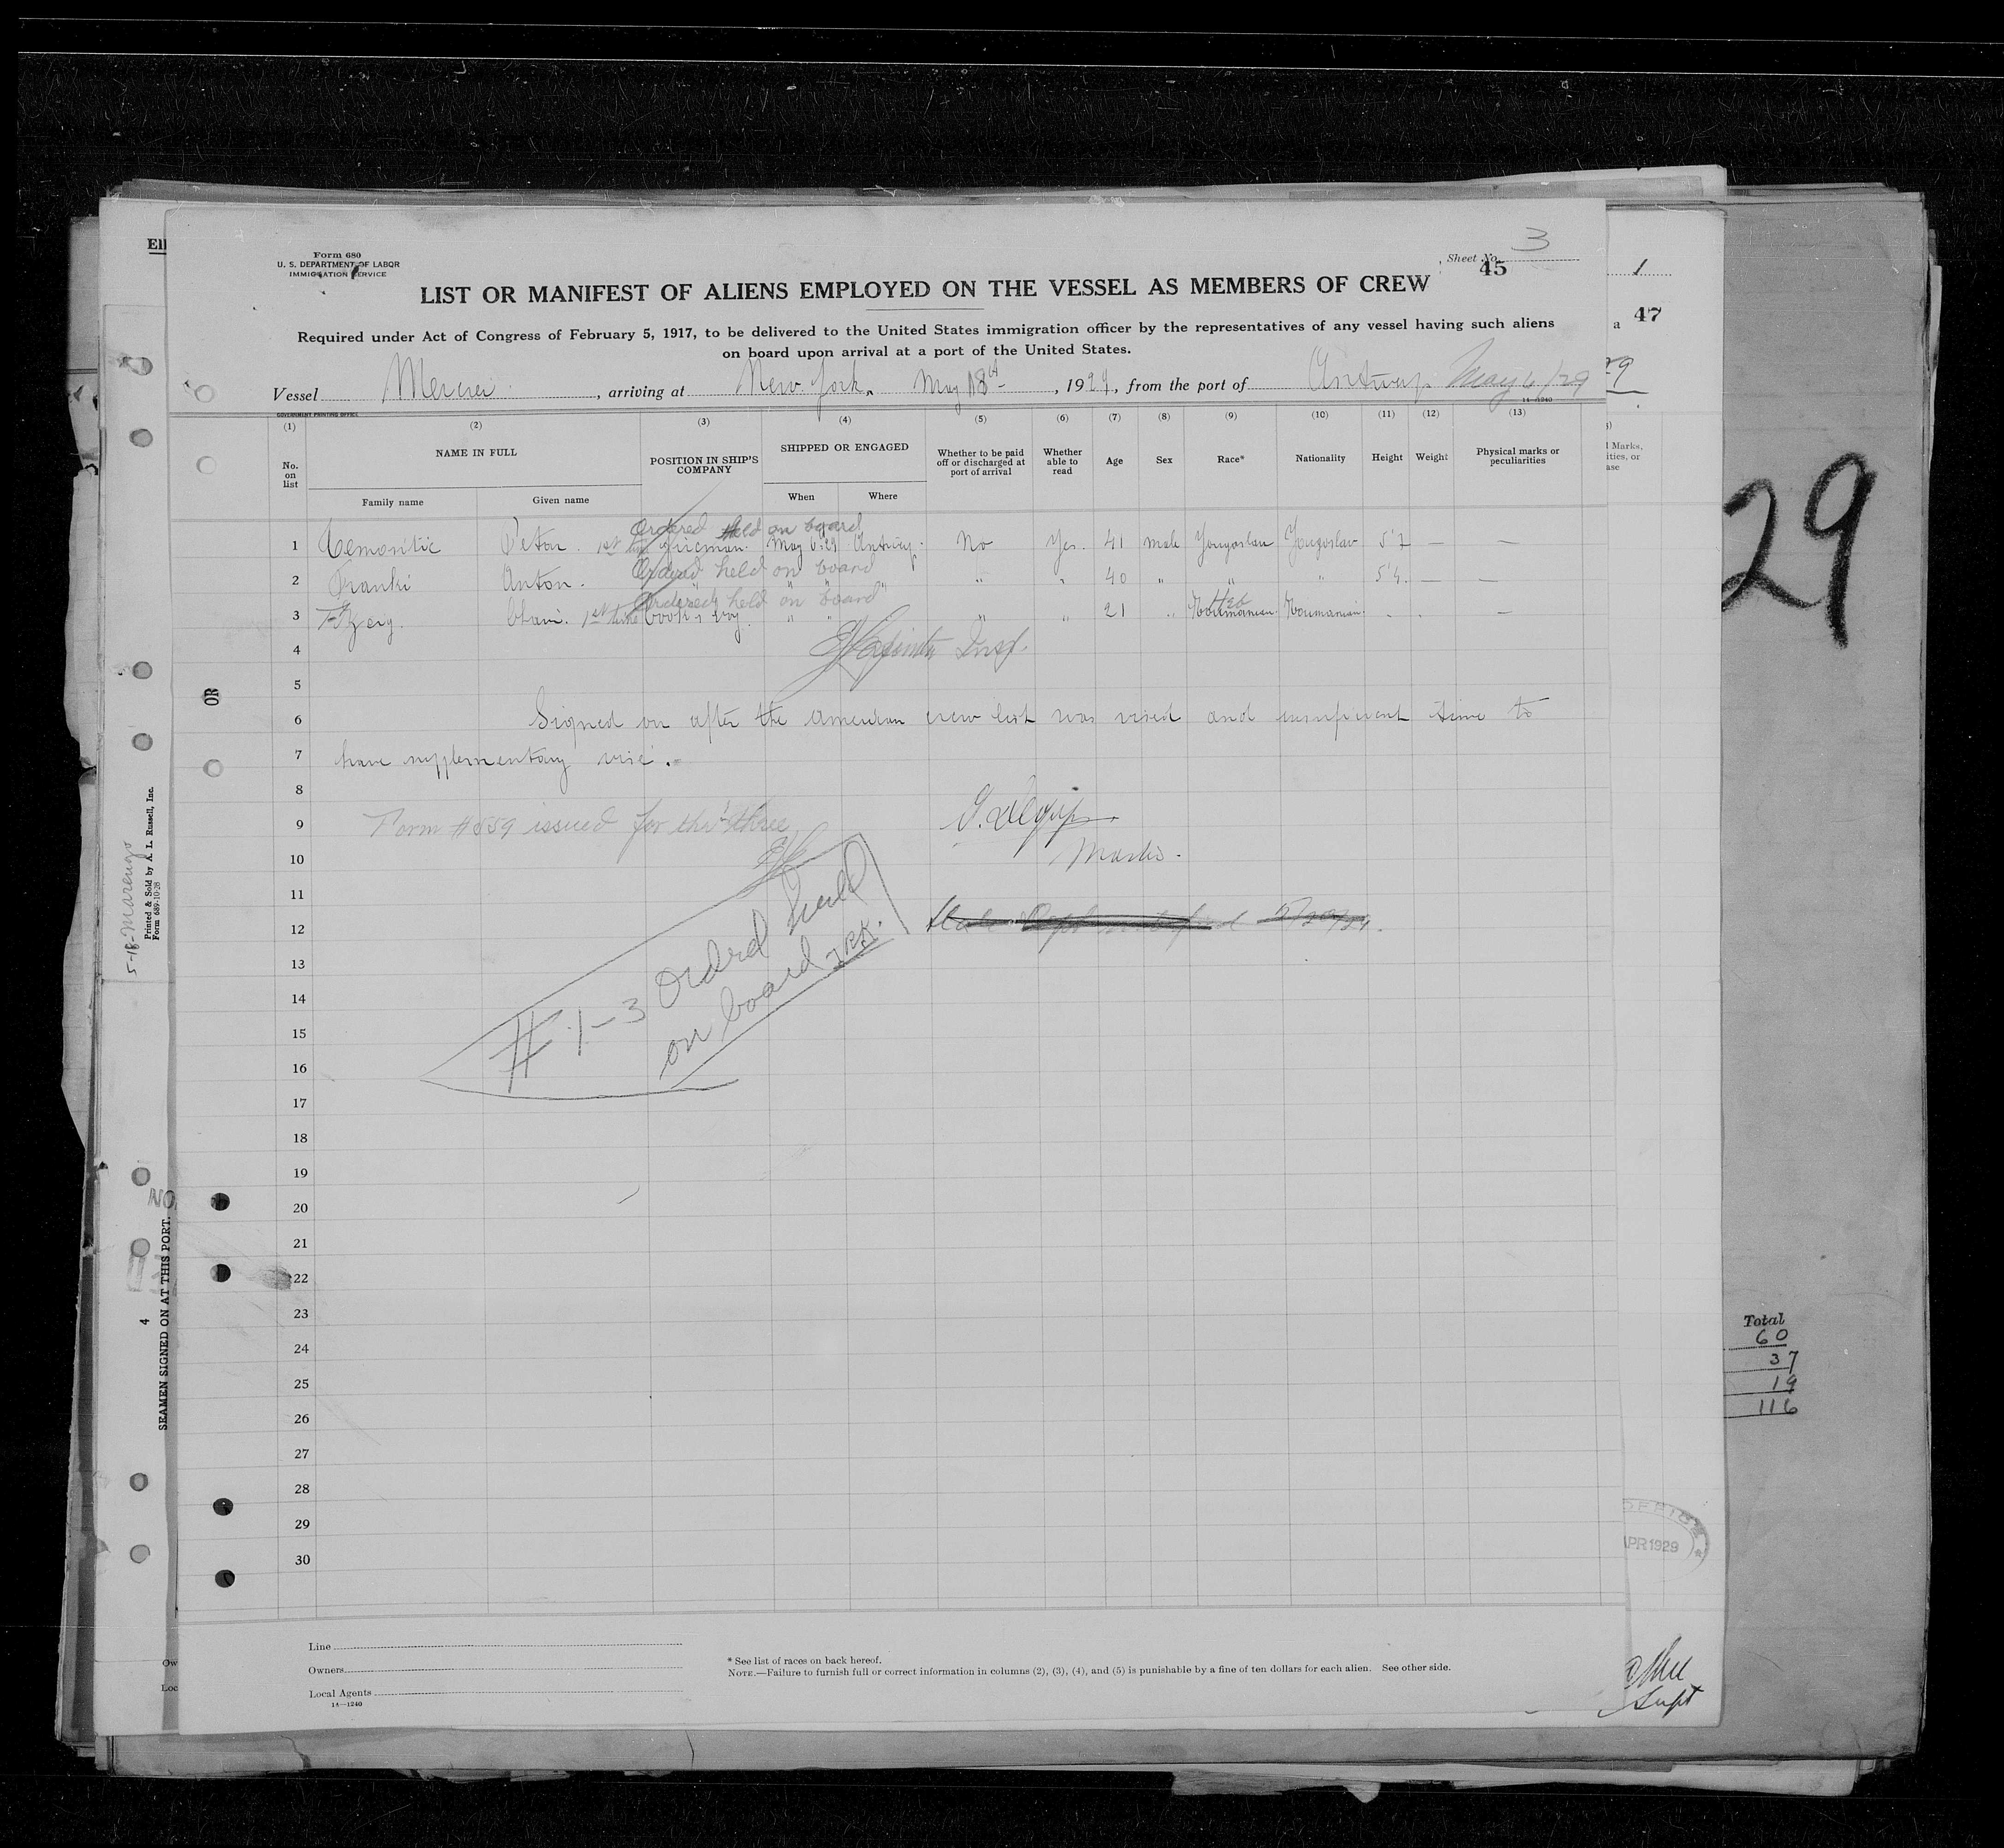 Form 680
U. S. DEPARTMENT OF LABOR
IMMIGRATION SERVICE
3
Sheet No.
45
LIST OR MANIFEST OF ALIENS EMPLOYED ON THE VESSEL AS MEMBERS OF CREW
Required under Act of Congress of February 5, 1917, to be delivered to the United States immigration officer by the representatives of any vessel having such aliens
on board upon arrival at a port of the United States.
Vessel Mercier, arriving at New York, May 18th, 1929, from the port of Antwerp May 6/29
GOVERNMENT PRINTING OFFICE
14—1240
(1) (2) (3) (4) (5) (6) (7) (8) (9) (10) (11) (12) (13)
No. on list
NAME IN FULL
Family name
Given name
POSITION IN SHIP'S COMPANY
SHIPPED OR ENGAGED
When
Where
Whether to be paid off or discharged at port of arrival
Whether able to read
Age
Sex
Race*
Nationality
Height
Weight
Physical marks or peculiarities
Ordered held on board
1 Peter. 1st time fireman. May 6.29 Antwerp. No Yes. 41 male Yougoslav Yougoslav 5'7 — —
Ordered held on board
2 Franki Anton. " " 40 " " " 5'4. — —
Ordered held on board
3 1st time Cook's boy. " " " " 21 " Heb Roumanian. Roumanian. - . —
4 Insp.
5
6 Signed on after the american crew list was viséd and insufficient time to
7 have supplementary visé.
8
9 Form #659 issued for the three
10 Master.
11
12 5/20/29.
13
14
15
16
17
18
19
20
21
22
23
24
25
26
27
28
29
30
#1-3 Ordrd held
on board JRK.
Line
Owners
Local Agents
14—1240
* See list of races on back hereof.
NOTE.—Failure to furnish full or correct information in columns (2), (3), (4), and (5) is punishable by a fine of ten dollars for each alien. See other side.
Ell
OR
5-18-Marengo
Printed & Sold by A. L. Russell, Inc.
Form 689-10-28
NO
4
SEAMEN SIGNED ON AT THIS PORT.
Ow
Loc
1
a 47
29
l Marks,
ities, or
ase
29
Total
60
37
19
116
OFFICE
APR 1929
Supt